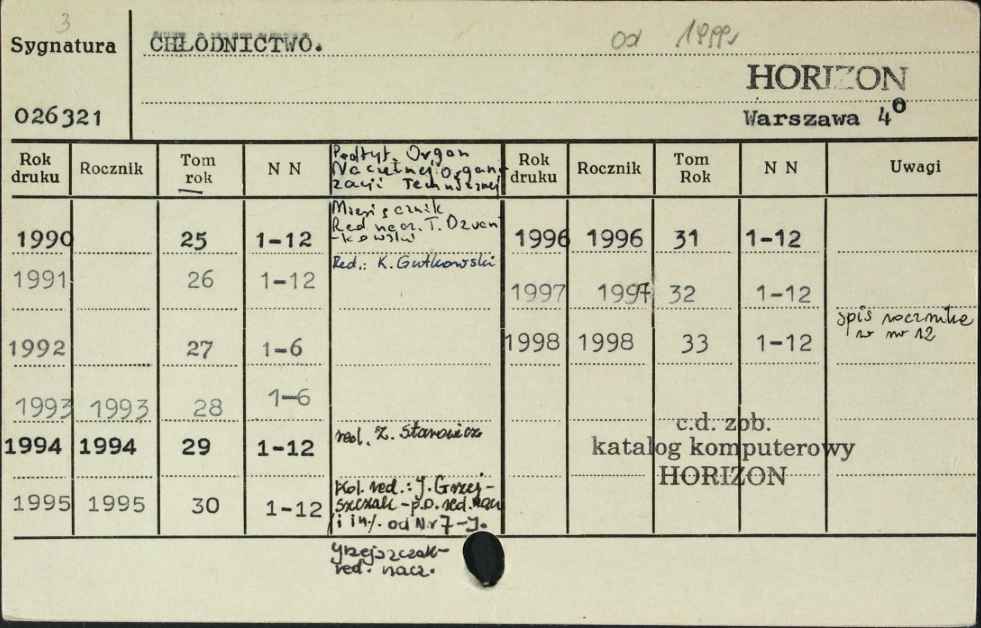 3
Sygnatura CHŁODNICTWO. od 1999
HORIZON
026321 Warszawa 4⁰
Rok druku Rocznik Tom rok N N Podtyt. Organ Naczelnej Organizacji Technicznej Rok druku Rocznik Tom Rok N N Uwagi
Miesięcznik
Red. nacz. T.
1990 25 1-12 1996 1996 31 1-12
Red.: K. Gutkowski
1991 26 1-12 1997 1997 32 1-12
spis rocznika
w nr 12
1992 27 1-6 1998 1998 33 1-12
1993 1993 28 1-6
c.d. zob.
1994 1994 29 1-12 red. Z. Starowicz katalog komputerowy
HORIZON
Kol. red.: J. Grzej-
szczak - p.o. red. nacz
1995 1995 30 1-12 i in/. od Nr 7 - J.
Grzejszczak-
red. nacz.